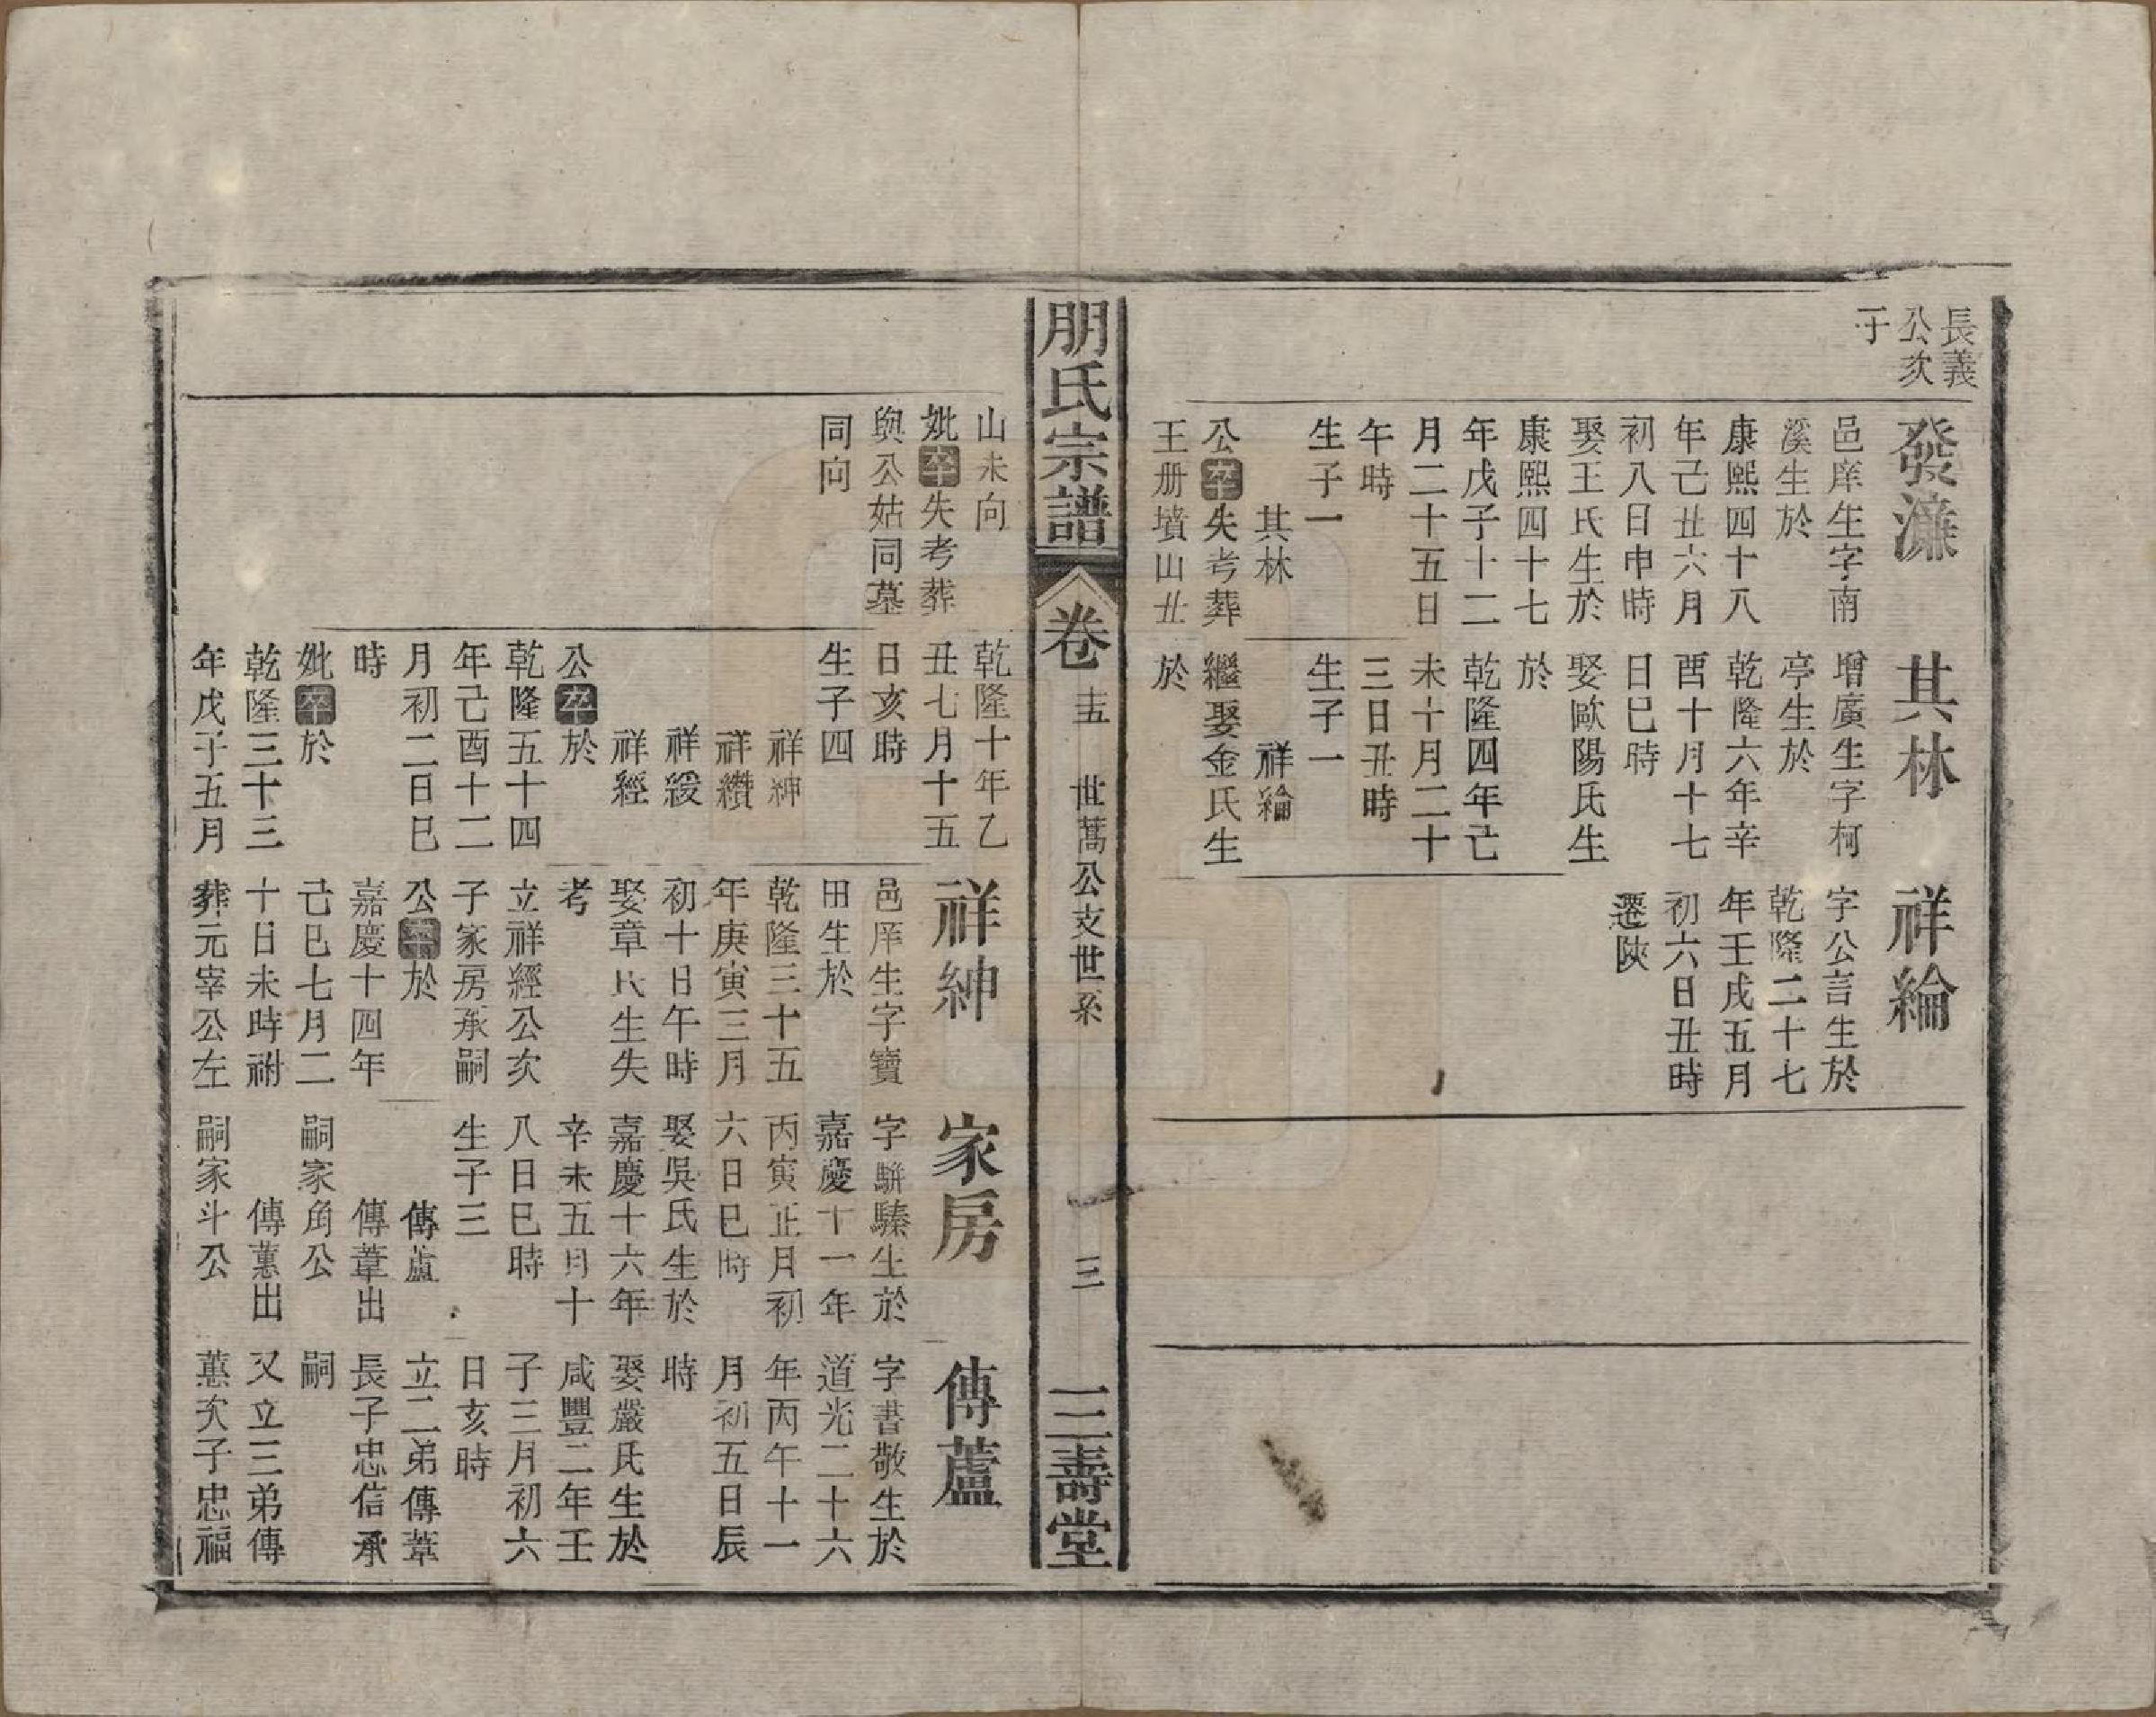 長義
公次
子
發濂
邑庠生字南
溪生於
康熙四十八
年己丑六月
初八日申時
娶王氏生於
康熙四十七
年戊子十二
月二十五日
午時
生子一
其林
公卒失考葬
王册墳山丑
其林
增廣生字柯
亭生於
乾隆六年辛
酉十月十七
日巳時
娶歐陽氏生
於
乾隆四年己
未十月二十
三日丑時
生子一
祥綸
繼娶金氏生
於
祥綸
字公言生於
乾隆二十七
年壬戌五月
初六日丑時
遷陝
朋氏宗譜
卷
十五
世萬公支世系
三
三壽堂
山未向
妣卒失考葬
與公姑同墓
同向
乾隆十年乙
丑七月十五
日亥時
生子四
祥紳
祥纘
祥緩
祥經
公卒於
乾隆五十四
年己酉十二
月初二日巳
時
妣卒於
乾隆三十三
年戊子五月
祥紳
邑庠生字寶
田生於
乾隆三十五
年庚寅三月
初十日午時
娶章氏生失
考
立祥經公次
子家房承嗣
公卒於
嘉慶十四年
己巳七月二
十日未時祔
葬元宰公左
家房
字駢騄生於
嘉慶十一年
丙寅正月初
六日巳時
娶吳氏生於
嘉慶十六年
辛未五月十
八日巳時
生子三
傳蘆
傳葦出
嗣家角公
傳蕙出
嗣家斗公
傳蘆
字書敬生於
道光二十六
年丙午十一
月初五日辰
時
娶嚴氏生於
咸豐二年壬
子三月初六
日亥時
立二弟傳葦
長子忠信承
嗣
又立三弟傳
蕙次子忠福